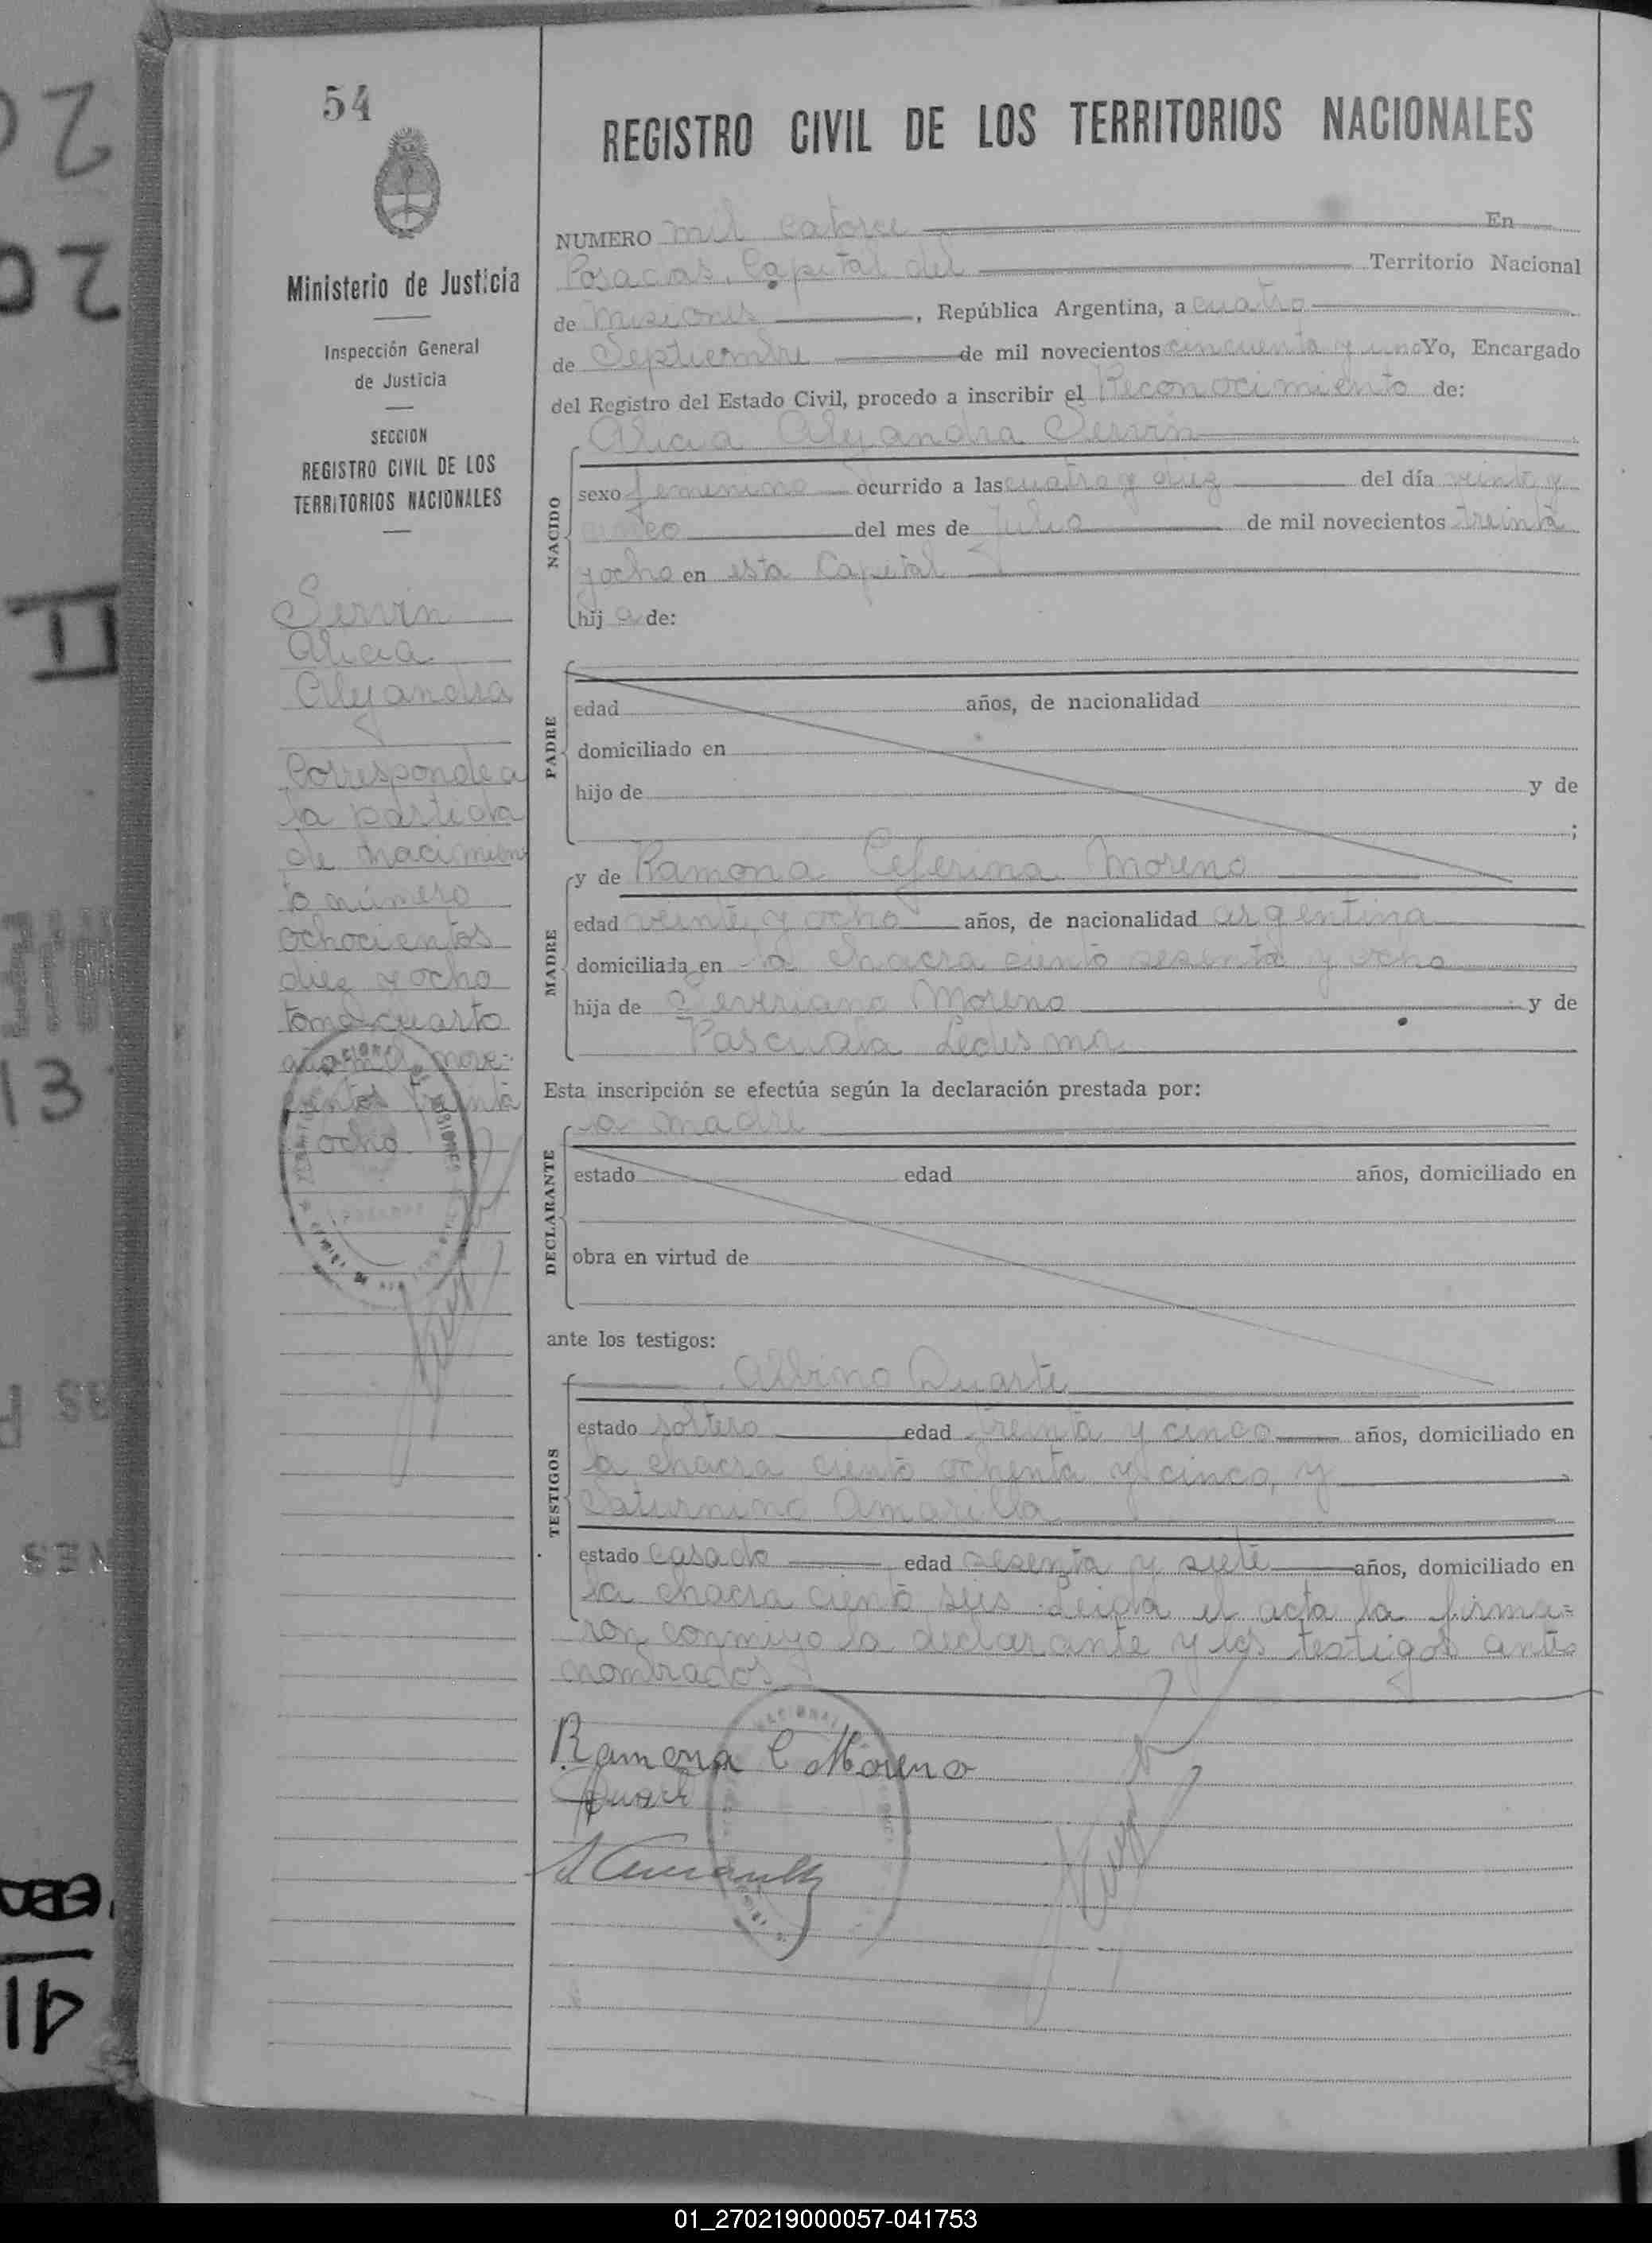 54
Ministerio de Justicia
Inspección General
de Justicia
SECCION
REGISTRO CIVIL DE LOS
TERRITORIOS NACIONALES
Servin
Alicia
Alejandra
Corresponde a
la partida
de nacimien
to número
ochocientos
diez y ocho
tomo cuarto
año mil nove-
cientos treinta
ocho.
REGISTRO CIVIL DE LOS TERRITORIOS NACIONALES
NUMERO mil catorce En
Posadas, Capital del Territorio Nacional
de Misiones, República Argentina, a cuatro
de Septiembre de mil novecientos cincuenta y uno Yo, Encargado
del Registro del Estado Civil, procedo a inscribir el Reconocimiento de:
Alicia Alejandra Servin
NACIDO
sexo femenino ocurrido a las cuatro y diez del día veinte y
cinco del mes de Julio de mil novecientos treinta
y ocho en esta Capital
hij a de:
PADRE
edad años, de nacionalidad
domiciliado en
hijo de y de
;
MADRE
y de Ramona Ceferina Moreno
edad veinte y ocho años, de nacionalidad argentina
domiciliada en la chacra ciento sesenta y ocho
hija de Severiano Moreno y de
Pascuala Ledesma
Esta inscripción se efectúa según la declaración prestada por:
la madre
DECLARANTE
estado edad años, domiciliado en
obra en virtud de
ante los testigos:
TESTIGOS
Albino Duarte
estado soltero edad treinta y cinco años, domiciliado en
la chacra ciento ochenta y cinco, y
Saturnino Amarilla
estado casado edad sesenta y siete años, domiciliado en
la chacra ciento seis. Leida el acta la firma=
ron conmigo la declarante y los testigos ante
nombrados
Ramona C Moreno
Duarte
01_270219000057-041753